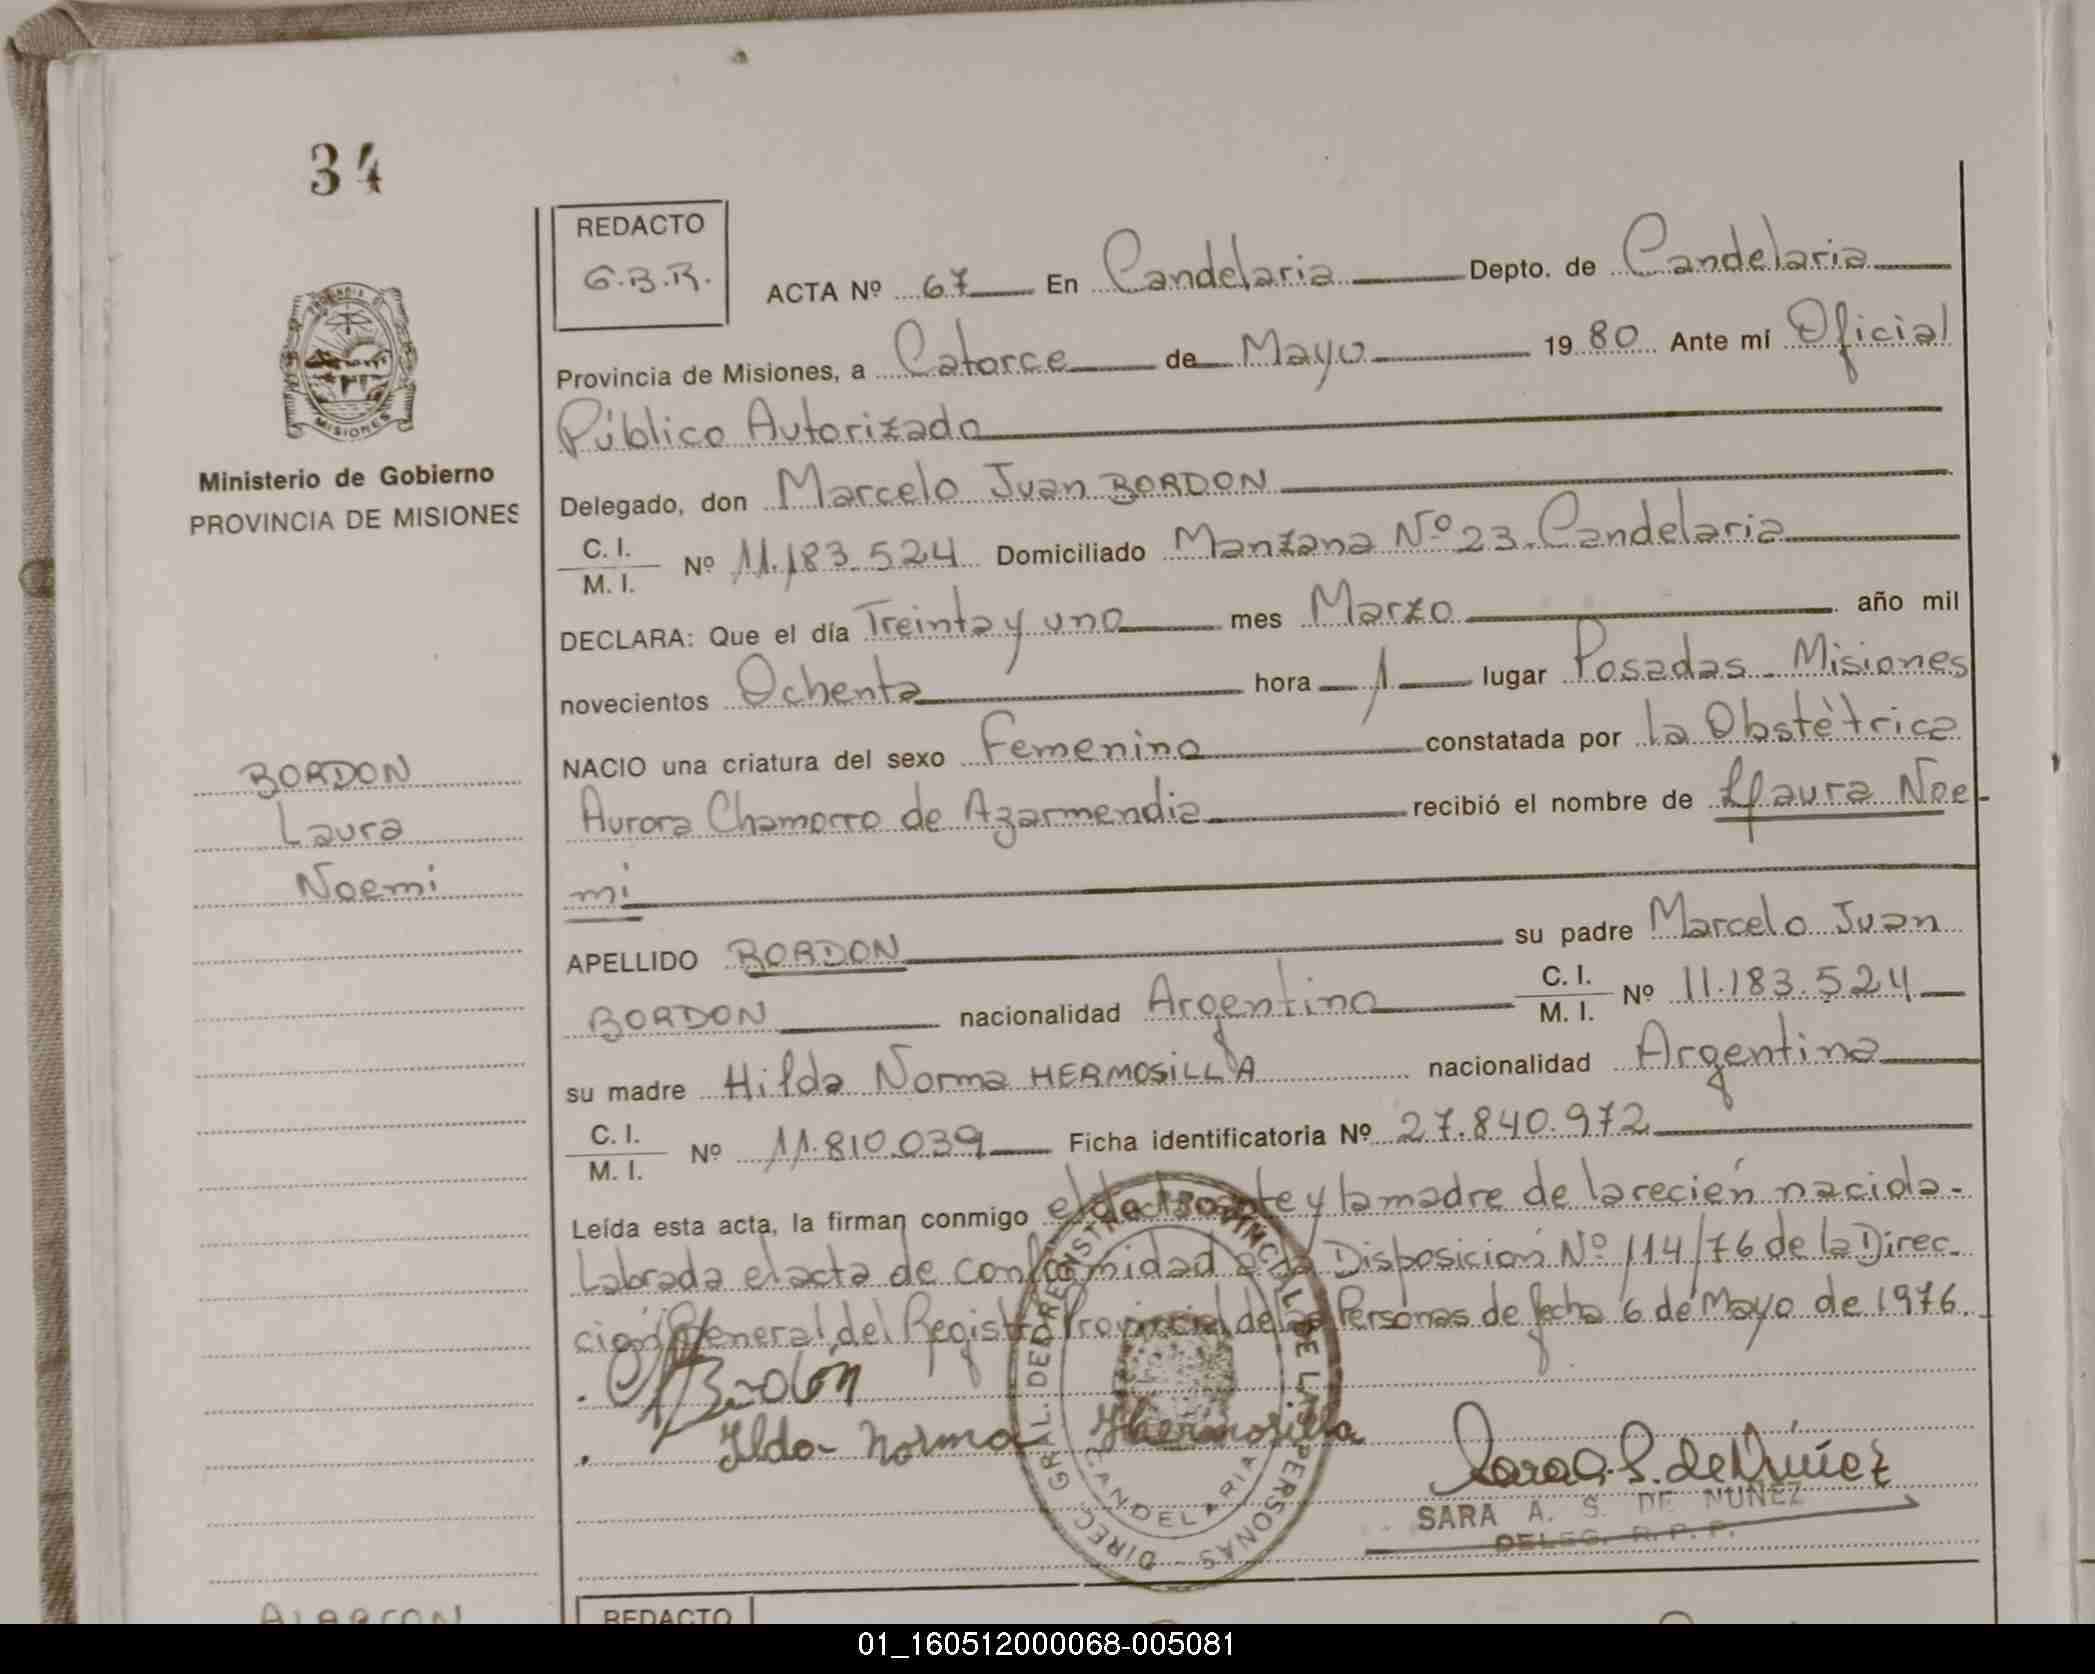 34
REDACTO
G.B.R.
ACTA Nº 67 En Candelaria Depto. de Candelaria
Provincia de Misiones, a Catorce de Mayo 1980 Ante mí Oficial
Público Autorizado
Delegado, don Marcelo Juan BORDON
C. I.
M. I.
Nº 11.183.524 Domiciliado Manzana Nº 23. Candelaria
DECLARA: Que el día Treinta y uno mes Marzo año mil
novecientos Ochenta hora 1 lugar Posadas - Misiones
NACIO una criatura del sexo Femenino constatada por la Obstétrica
Aurora Chamorro de Azarmendia recibió el nombre de Laura Noe-
mi
APELLIDO BORDON su padre Marcelo Juan
BORDON nacionalidad Argentino C. I.
M. I.
Nº 11.183.524
su madre Hilda Norma HERMOSILLA nacionalidad Argentina
C. I.
M. I.
Nº 11.810.039 Ficha identificatoria Nº 27.840.972
Leída esta acta, la firman conmigo el declarante y la madre de la recién nacida.
Labrada el acta de conformidad a la Disposición Nº 114/76 de la Direc-
ción General del Registro Provincial de las Personas de fecha 6 de Mayo de 1976.
Ilda Norma Hermosilla
Sara A. S. de Núñez
SARA A. S. DE NUÑEZ
DELEG. R. P. P.
DIREC. GRAL. DEL REGISTRO PROVINCIAL DE LAS PERSONAS
CANDELARIA
PROVINCIA DE
MISIONES
Ministerio de Gobierno
PROVINCIA DE MISIONES
BORDON
Laura
Noemi
ALARCON
REDACTO
01_160512000068-005081